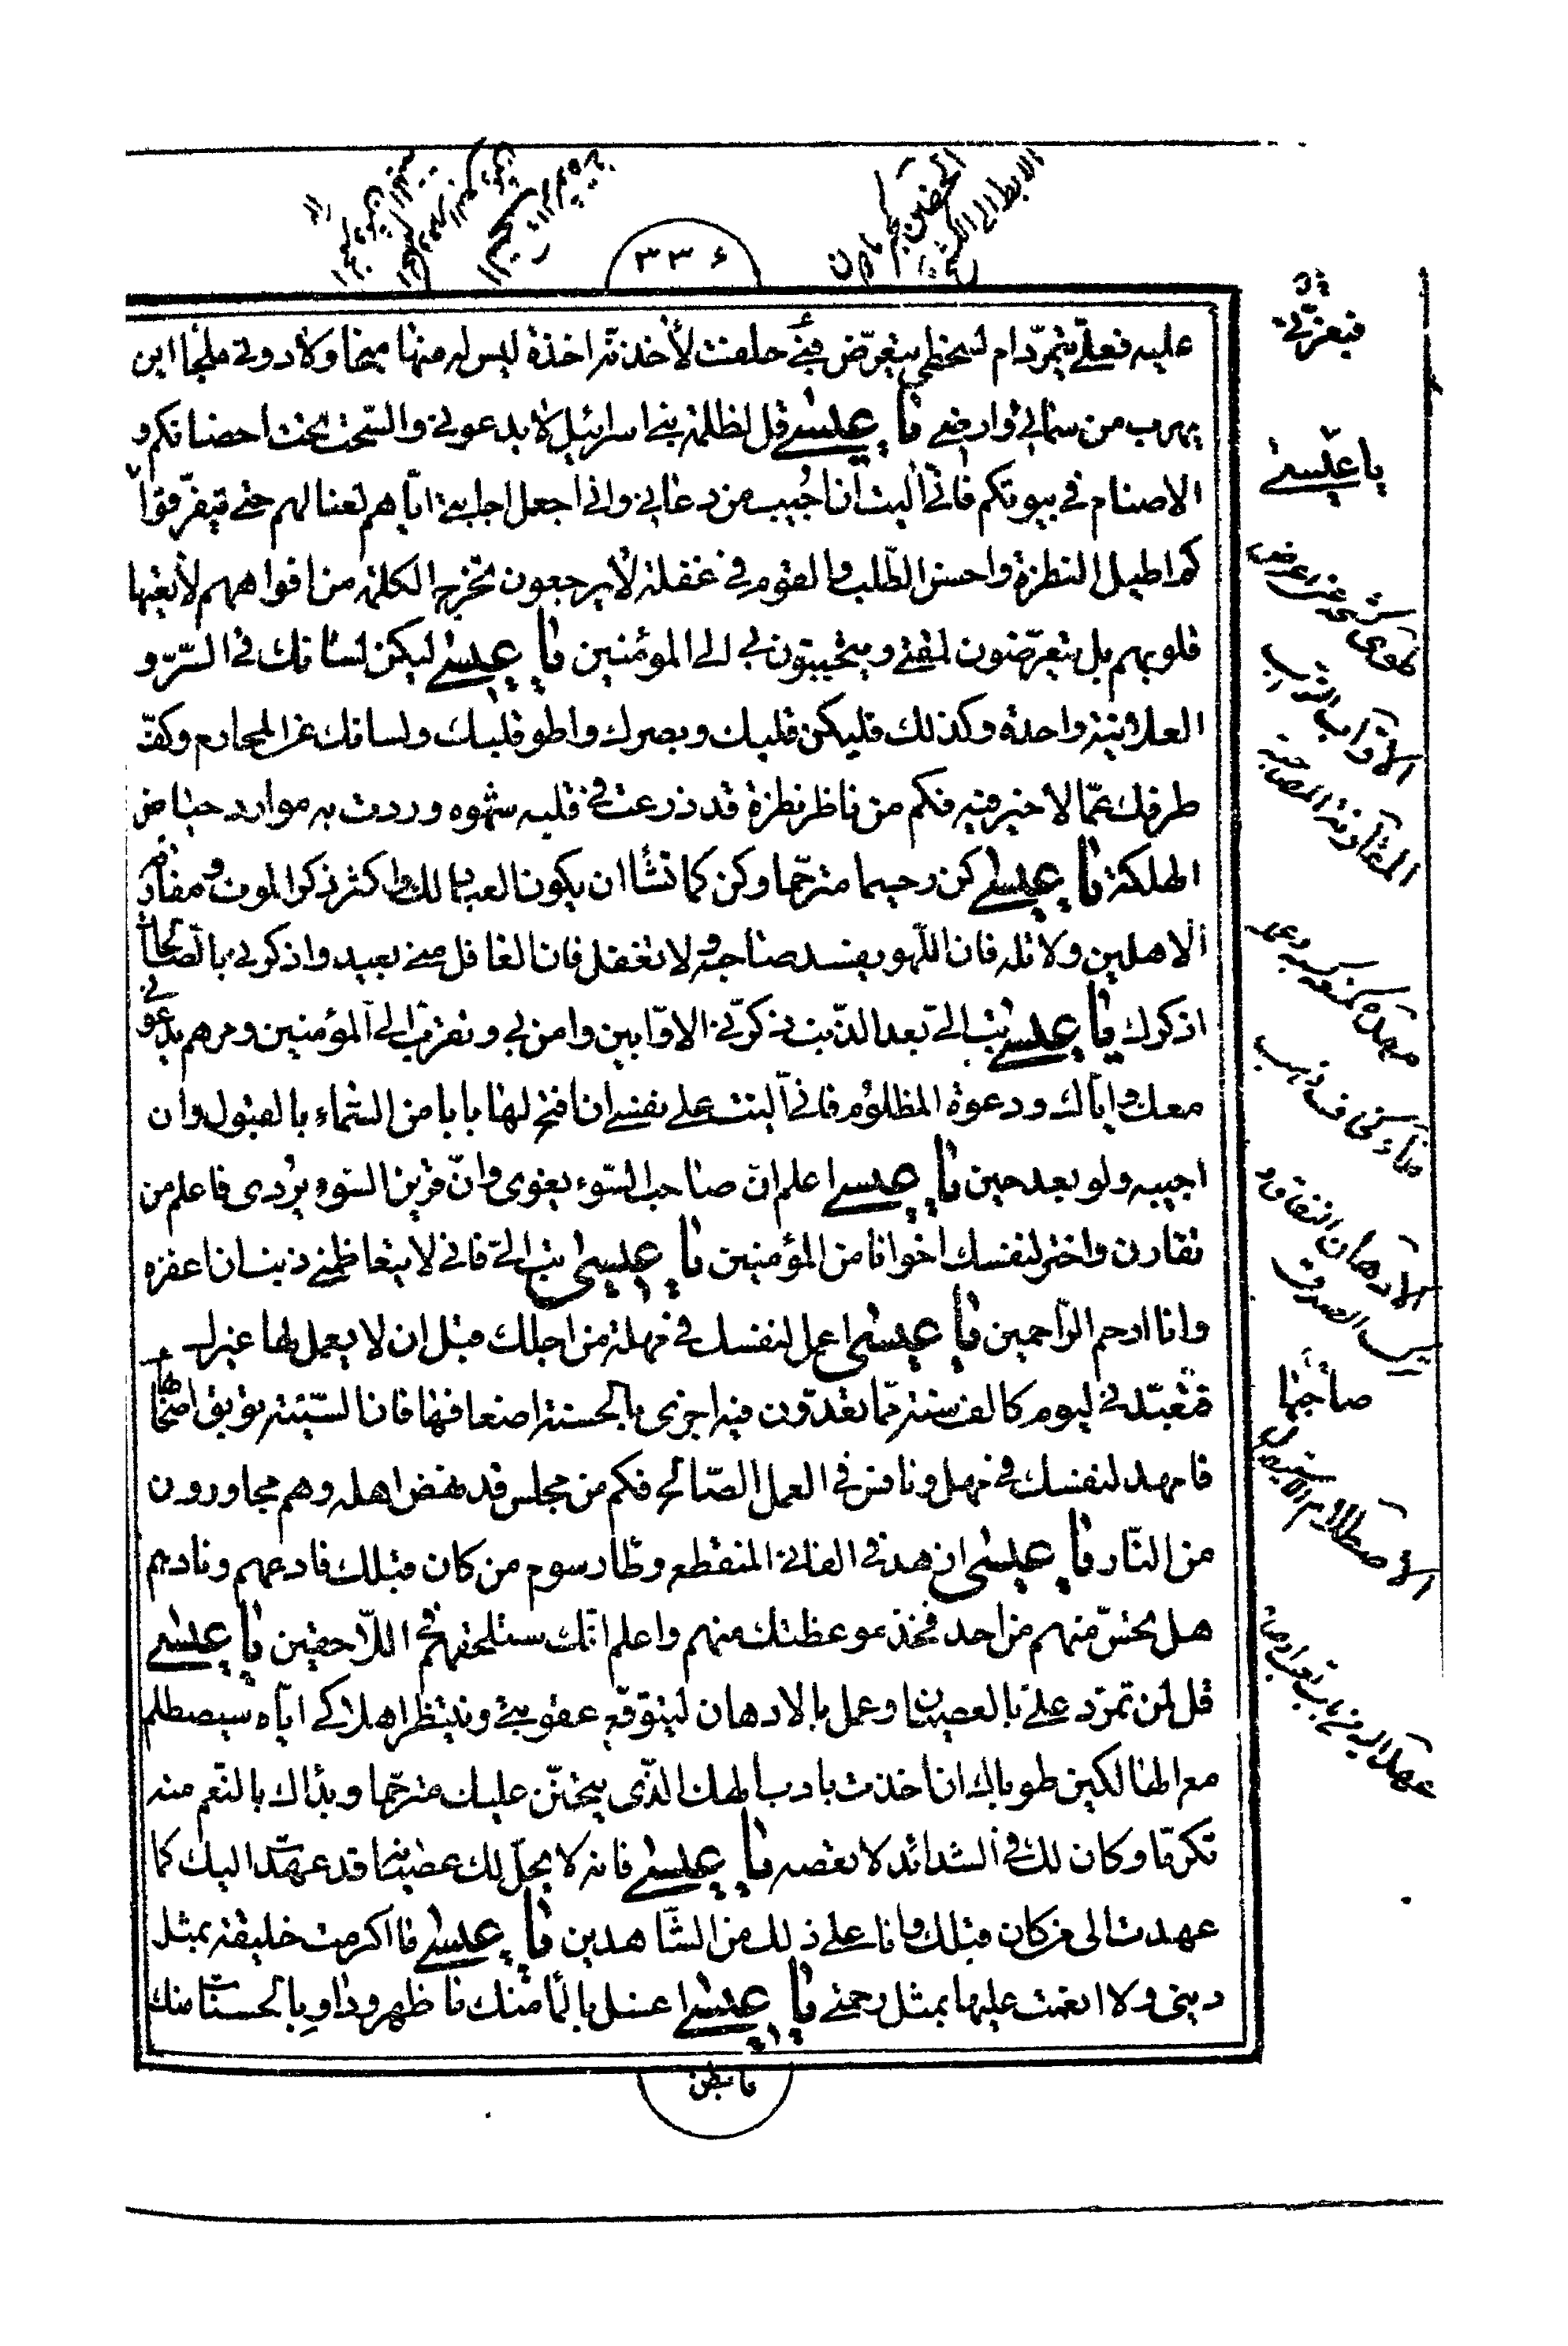 ٣٣٤
عليه فعلىّ يتمرّد ام لسخطى يتعرّض فبى حلفت لأخذنّه اخذة ليس له منها منجا ولا دونى ملجأ اين
يهرب من سمائى وارضى يا عيسى قل لظلمة بنى اسرائيل لا تدعونى والسّحت تحت احضانكم و
الاصنام فى بيوتكم فانّى آليت ان اجيب من دعانى وانى اجعل اجابتى ايّاهم لعنا لهم حتى يتفرّقوا
كم اطيل النظرة واحسن الطّلب والقوم فى غفلة لا يرجعون تخرج الكلمة من افواههم لا تعيها
قلوبهم بل يتعرّضون لمقتى ويتحببون بى الى المؤمنين يا عيسى ليكن لسانك فى السّرّ و
العلانية واحدة وكذلك فليكن قلبك وبصرك واطو قلبك ولسانك عن المحارم وكفّ
طرفك عمّا لا خير فيه فكم من ناظر نظرة قد زرعت فى قلبه شهوه ووردت به موارد حياض
الهلكة يا عيسى كن رحيما مترحّما وكن كما تشأ ان يكون العباد لك واكثر ذكر الموت ومفارقة
الاهلين ولا تله فان اللّهو يفسد صاحبه ولا تغفل فان الغافل منى بعيد واذكرنى بالصّالحات
اذكرك يا عيسى تب الىّ بعد الذّنب ذكّر بى الاوّابين وامن بى وتقرّب الى المؤمنين ومرهم يدعونى
معك واياك ودعوة المظلوم فانى آليت على نفسى ان افتح لها بابا من السّماء بالقبول وان
اجيبه ولو بعد حين يا عيسى اعلم انّ صاحب السّوء يغوى وانّ قرين السّوء يردى فاعلم من
تقارن واختر لنفسك اخوانا من المؤمنين يا عيسى تب الىّ فانى لا يتعاظمنى ذنب ان اغفره
وانا ارحم الرّاحمين يا عيسى اعمل لنفسك فى مهلة من اجلك قبل ان لا يعمل لها غيرك
تعبّد لى ليوم كالف سنة ممّا تعدّون فيه اجزى بالحسنة اضعافها فان السّيّئة توبق صاحبها
فامهد لنفسك فى مهل ونافس فى العمل الصّالح فكم من مجلس قد نهض اهله وهم مجاورون
من النّار يا عيسى ازهد فى الفانى المنقطع وطأ رسوم من كان قبلك فادعهم ونادهم
هل تحسّ منهم من احد فخذ موعظتك منهم واعلم انّك ستلحقهم فى اللّاحقين يا عيسى
قل لمن تمرّد علىّ بالعصيان وعمل بالادهان ليتوقّع عقوبتى وينتظر اهلاكى ايّاه سيصطلم
مع الهالكين طوباك ان اخذت بادب الهك الذّى يتحنّن عليك مترحّما وبدأك بالنّعم منه
تكرّما وكان لك فى الشدائد لا تعصه يا عيسى فانه لا يحلّ لك عصيانه قد عهدت اليك كما
عهدت الى من كان قبلك وانا على ذلك من الشّاهدين يا عيسى ما اكرمت خليقة بمثل
دينى ولا انعمت عليها بمثل رحمتى يا عيسى اغسل بالمأ منك ما ظهر وداو بالحسنات منك
ما بطن
يا عيسى
صاحبها